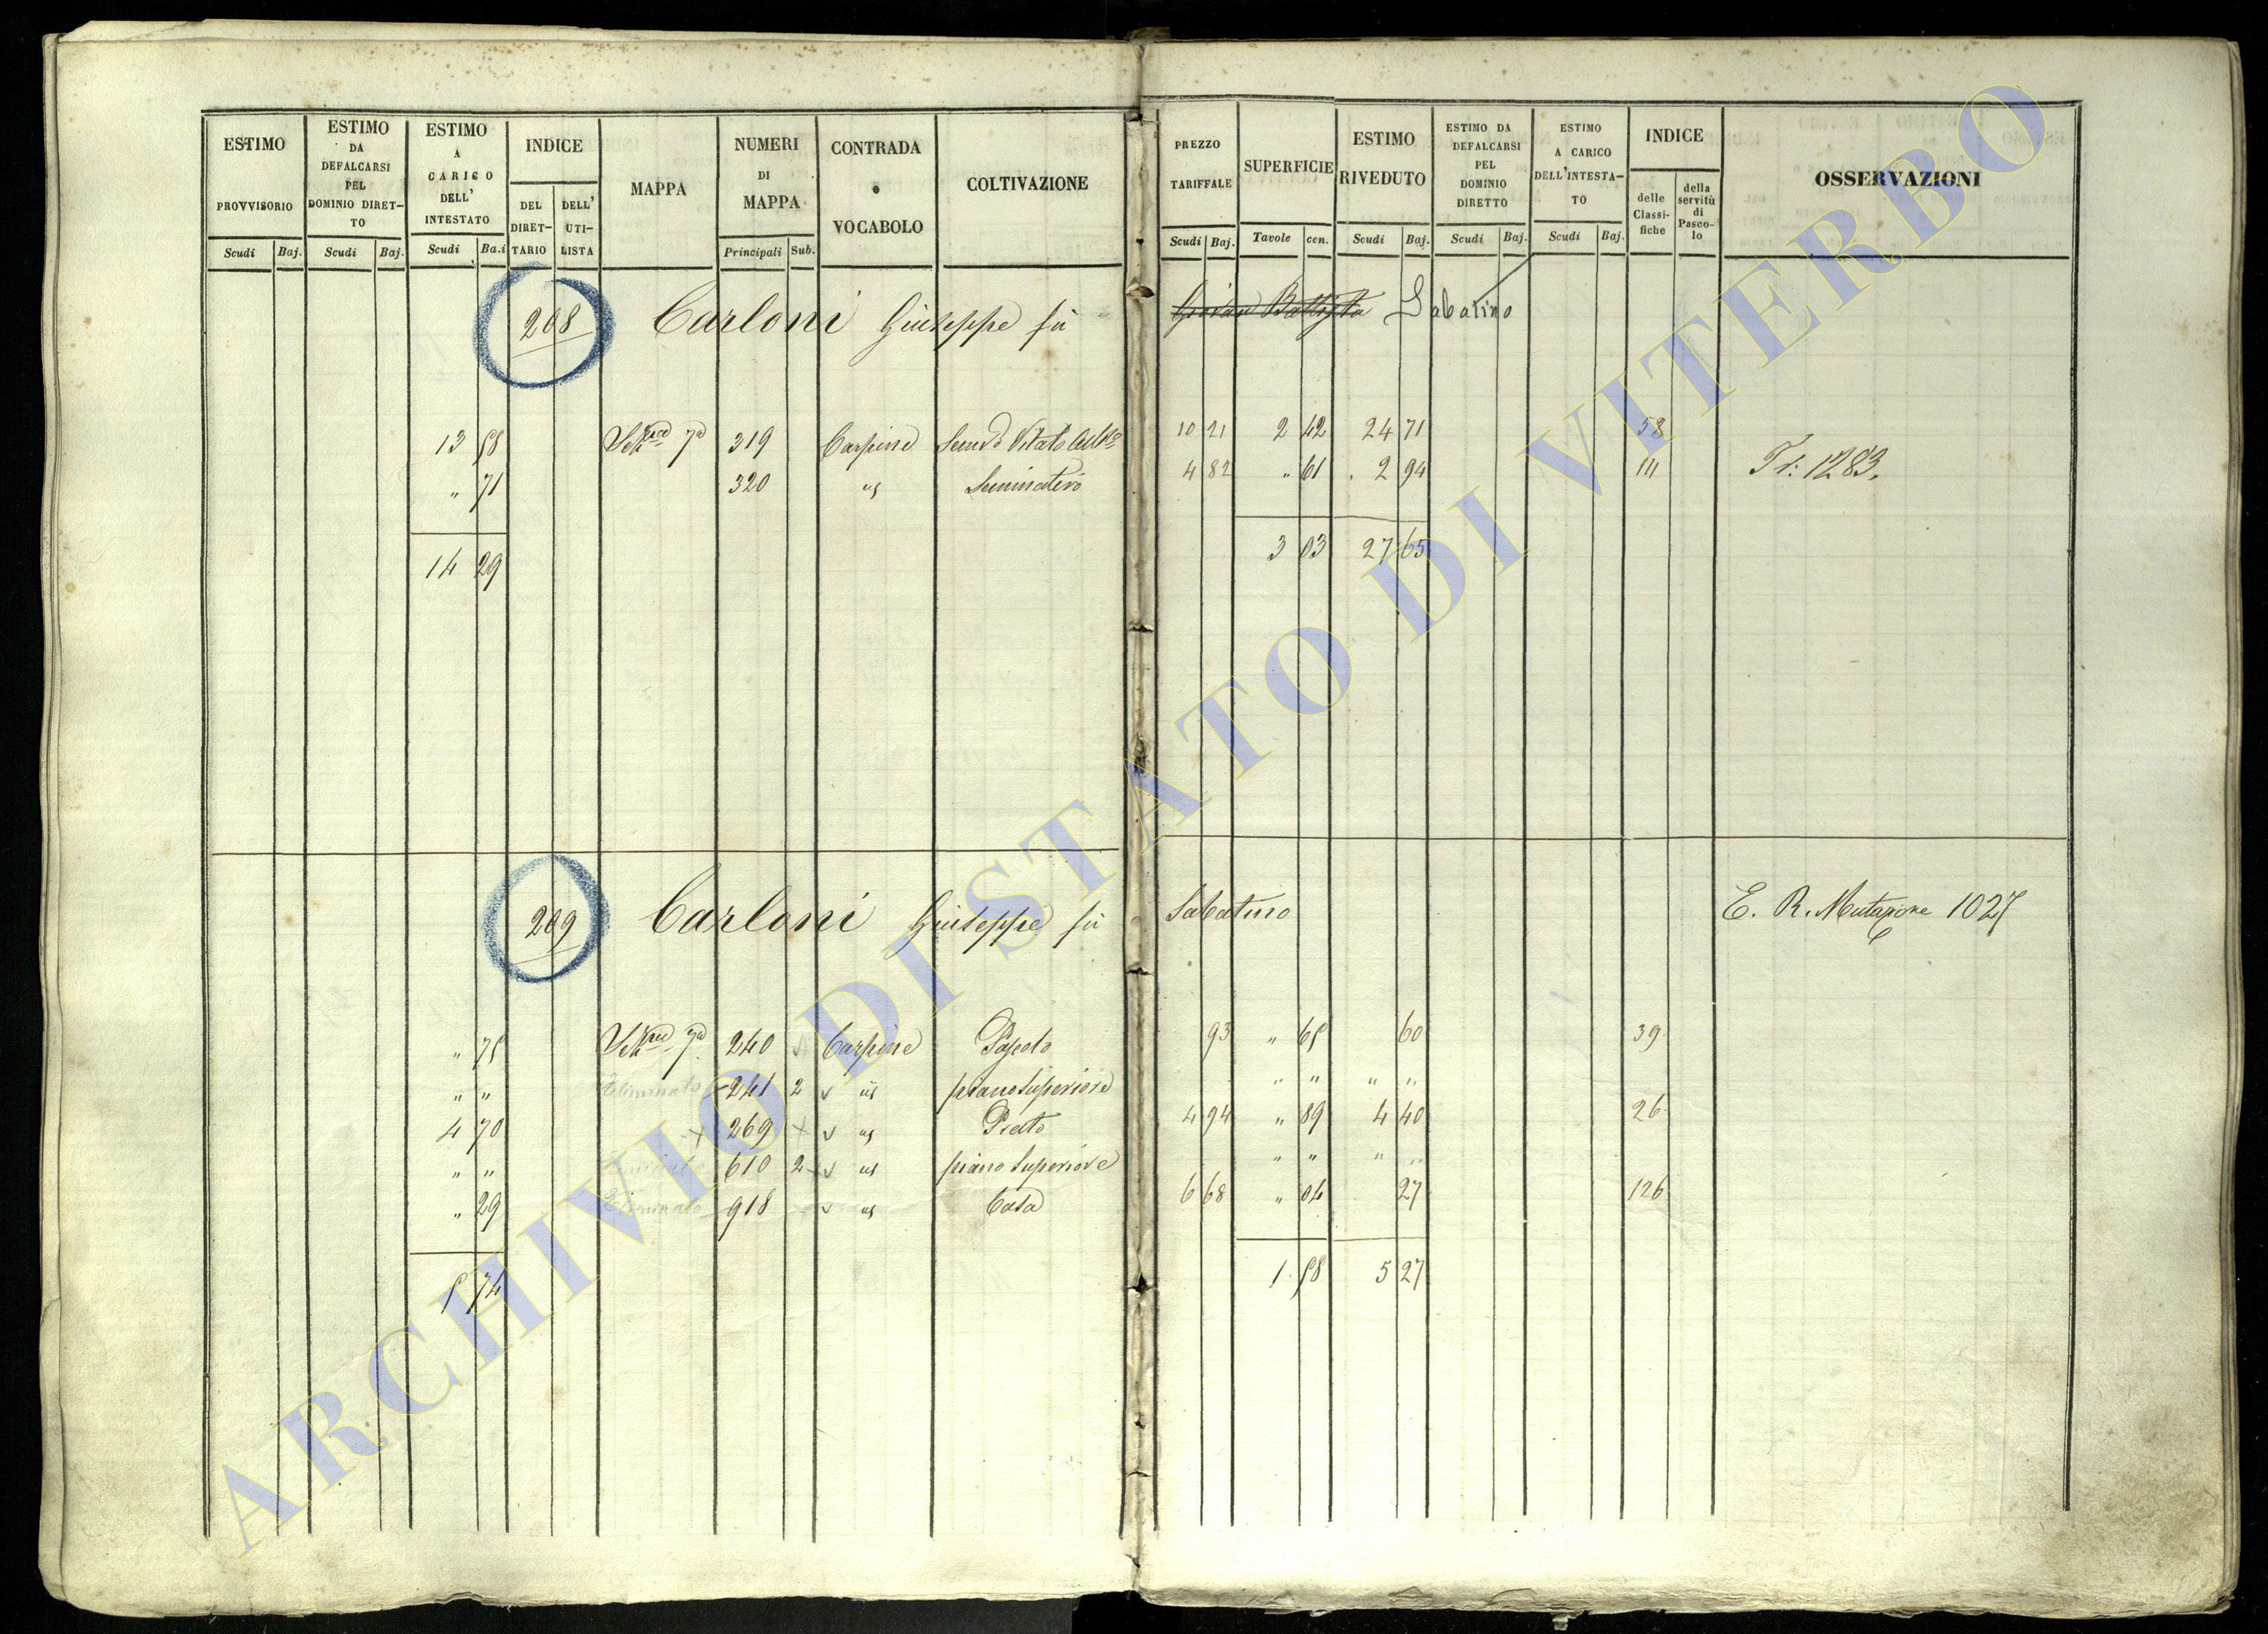 ESTIMO PROVVISORIO
Scudi Baj.
ESTIMO DA DEFALCARSI PEL DOMINIO DIRET-TO
Scudi Baj.
ESTIMO A CARICO DELL' INTESTATO
Scudi Ba.i
INDICE
DEL DIRET-TARIO
DELL' UTI-LISTA
MAPPA
NUMERI DI MAPPA
Principali Sub.
CONTRADA o VOCABOLO
COLTIVAZIONE
PREZZO TARIFFALE
Scudi Baj.
SUPERFICIE
Tavole cen.
ESTIMO RIVEDUTO
Scudi Baj.
ESTIMO DA DEFALCARSI PEL DOMINIO DIRETTO
Scudi Baj.
ESTIMO A CARICO DELL'INTESTA-TO
Scudi Baj.
INDICE
delle Classi-fiche
della servitù di Pasco-lo
OSSERVAZIONI
208 Carloni Giuseppe fu Giovan Battista Sabatino
13 58 7a 319 Carpine 10 21 2 42 24 71 58
" 71 320 Seminativo 4 82 " 61 2 94 111 Tr: 1283.
14 29 3 03 27 65
209 Carloni Giuseppe fu Sabatino E. R. Mutazione 1027
" 75 7a 240 Carpine Pascolo 93 " 65 60 39
" " Eliminato 241 2 piano Superiore " " " "
4 70 269 Prato 4 94 " 89 4 40 26
" " 610 2 piano Superiore " " " "
" 29 Eliminato 918 Casa 6 68 " 04 27 126
5 74 1 58 5 27
ARCHIVIO DI STATO DI VITERBO